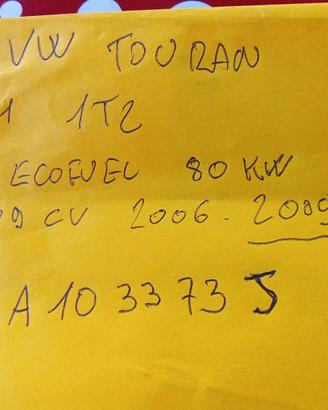 VW TOURAN
1 1T2
ECOFUEL 80 KW
9 CV 2006 - 2009
A 10 33 73 J